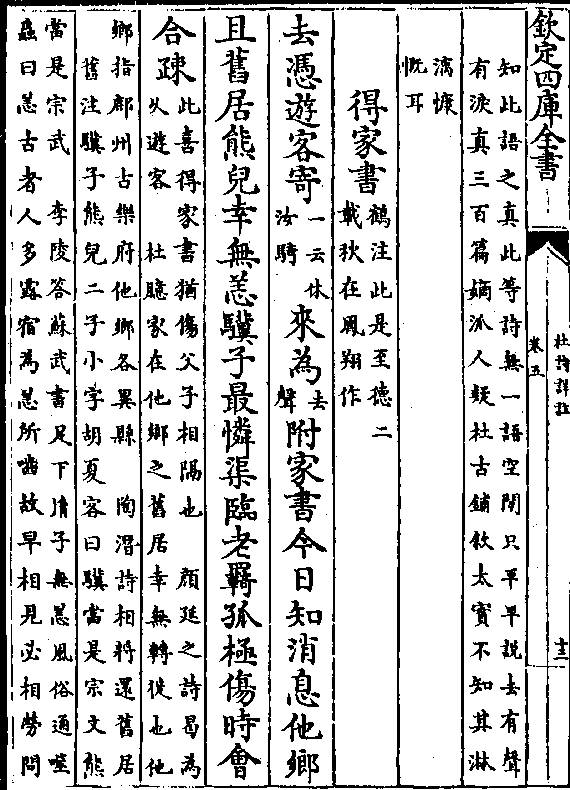 欽定四庫全書
杜詩詳註
卷五
十三
知此語之真此等詩無一語空閒只平平說去有聲
有淚真三百篇嫡派人疑杜古鋪敘太實不知其淋
漓慷
慨耳
得家書
鶴注此是至德二
載秋在鳳翔作
去憑遊客寄
一云休
汝騎
來為
去
聲
附家書今日知消息他鄉
且舊居熊兒幸無恙驥子最憐渠臨老羈孤極傷時會
合疎
此喜得家書猶傷父子相隔也 顔延之詩曷為
久遊客 杜臆家在他鄉之舊居幸無轉徙也他
鄉指鄜州古樂府他鄉各異縣 陶潛詩相將還舊居
舊注驥子熊兒二子小字胡夏客曰驥當是宗文熊
當是宗武 李陵答蘇武書足下𦙍子無恙風俗通噬
蟲曰恙古者人多露宿為恙所嚙故早相見必相勞問